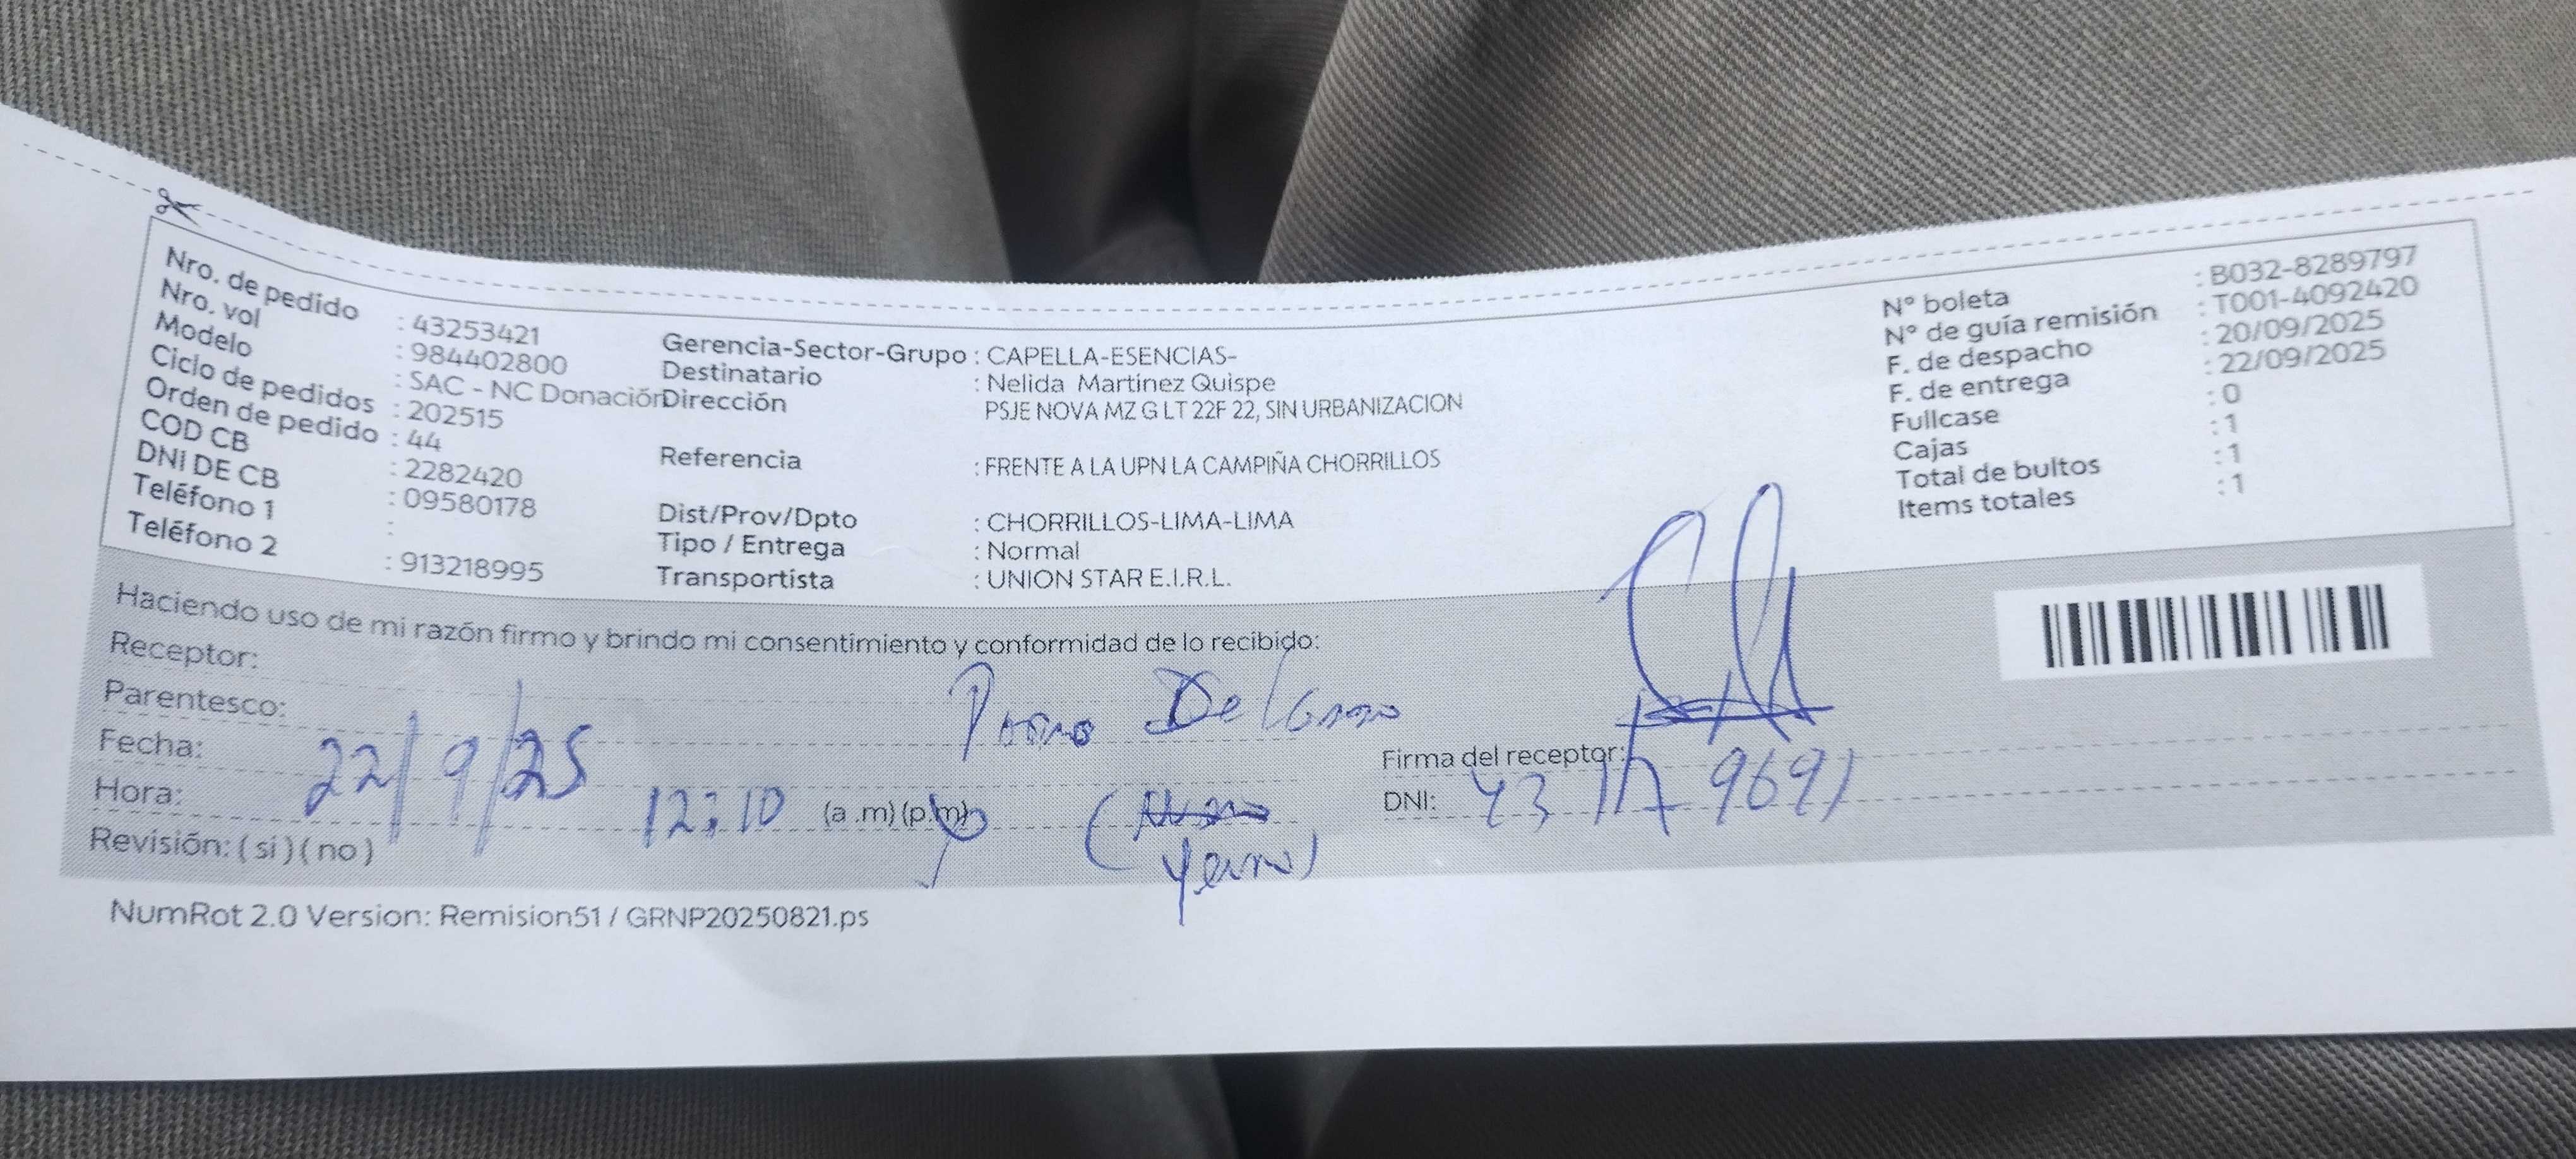 Nro. de pedido : 43253421
Nro. vol : 984402800
Modelo : SAC - NC Donación
Ciclo de pedidos : 202515
Orden de pedido : 44
COD CB : 2282420
DNI DE CB : 09580178
Teléfono 1 :
Teléfono 2 : 913218995
Gerencia-Sector-Grupo : CAPELLA-ESENCIAS-
Destinatario : Nelida Martinez Quispe
Dirección PSJE NOVA MZ G LT 22F 22, SIN URBANIZACION
Referencia : FRENTE A LA UPN LA CAMPIÑA CHORRILLOS
Dist/Prov/Dpto : CHORRILLOS-LIMA-LIMA
Tipo / Entrega : Normal
Transportista : UNION STAR E.I.R.L.
N° boleta : B032-8289797
N° de guía remisión : T001-4092420
F. de despacho : 20/09/2025
F. de entrega : 22/09/2025
Fullcase : 0
Cajas : 1
Total de bultos : 1
Items totales : 1
Haciendo uso de mi razón firmo y brindo mi consentimiento y conformidad de lo recibido:
Receptor:
Parentesco:
Fecha: 22/9/25
Firma del receptor:
Hora: 12:10 (a.m)(p.m)
DNI:
Revisión: (si)(no)
NumRot 2.0 Version: Remision51 / GRNP20250821.ps